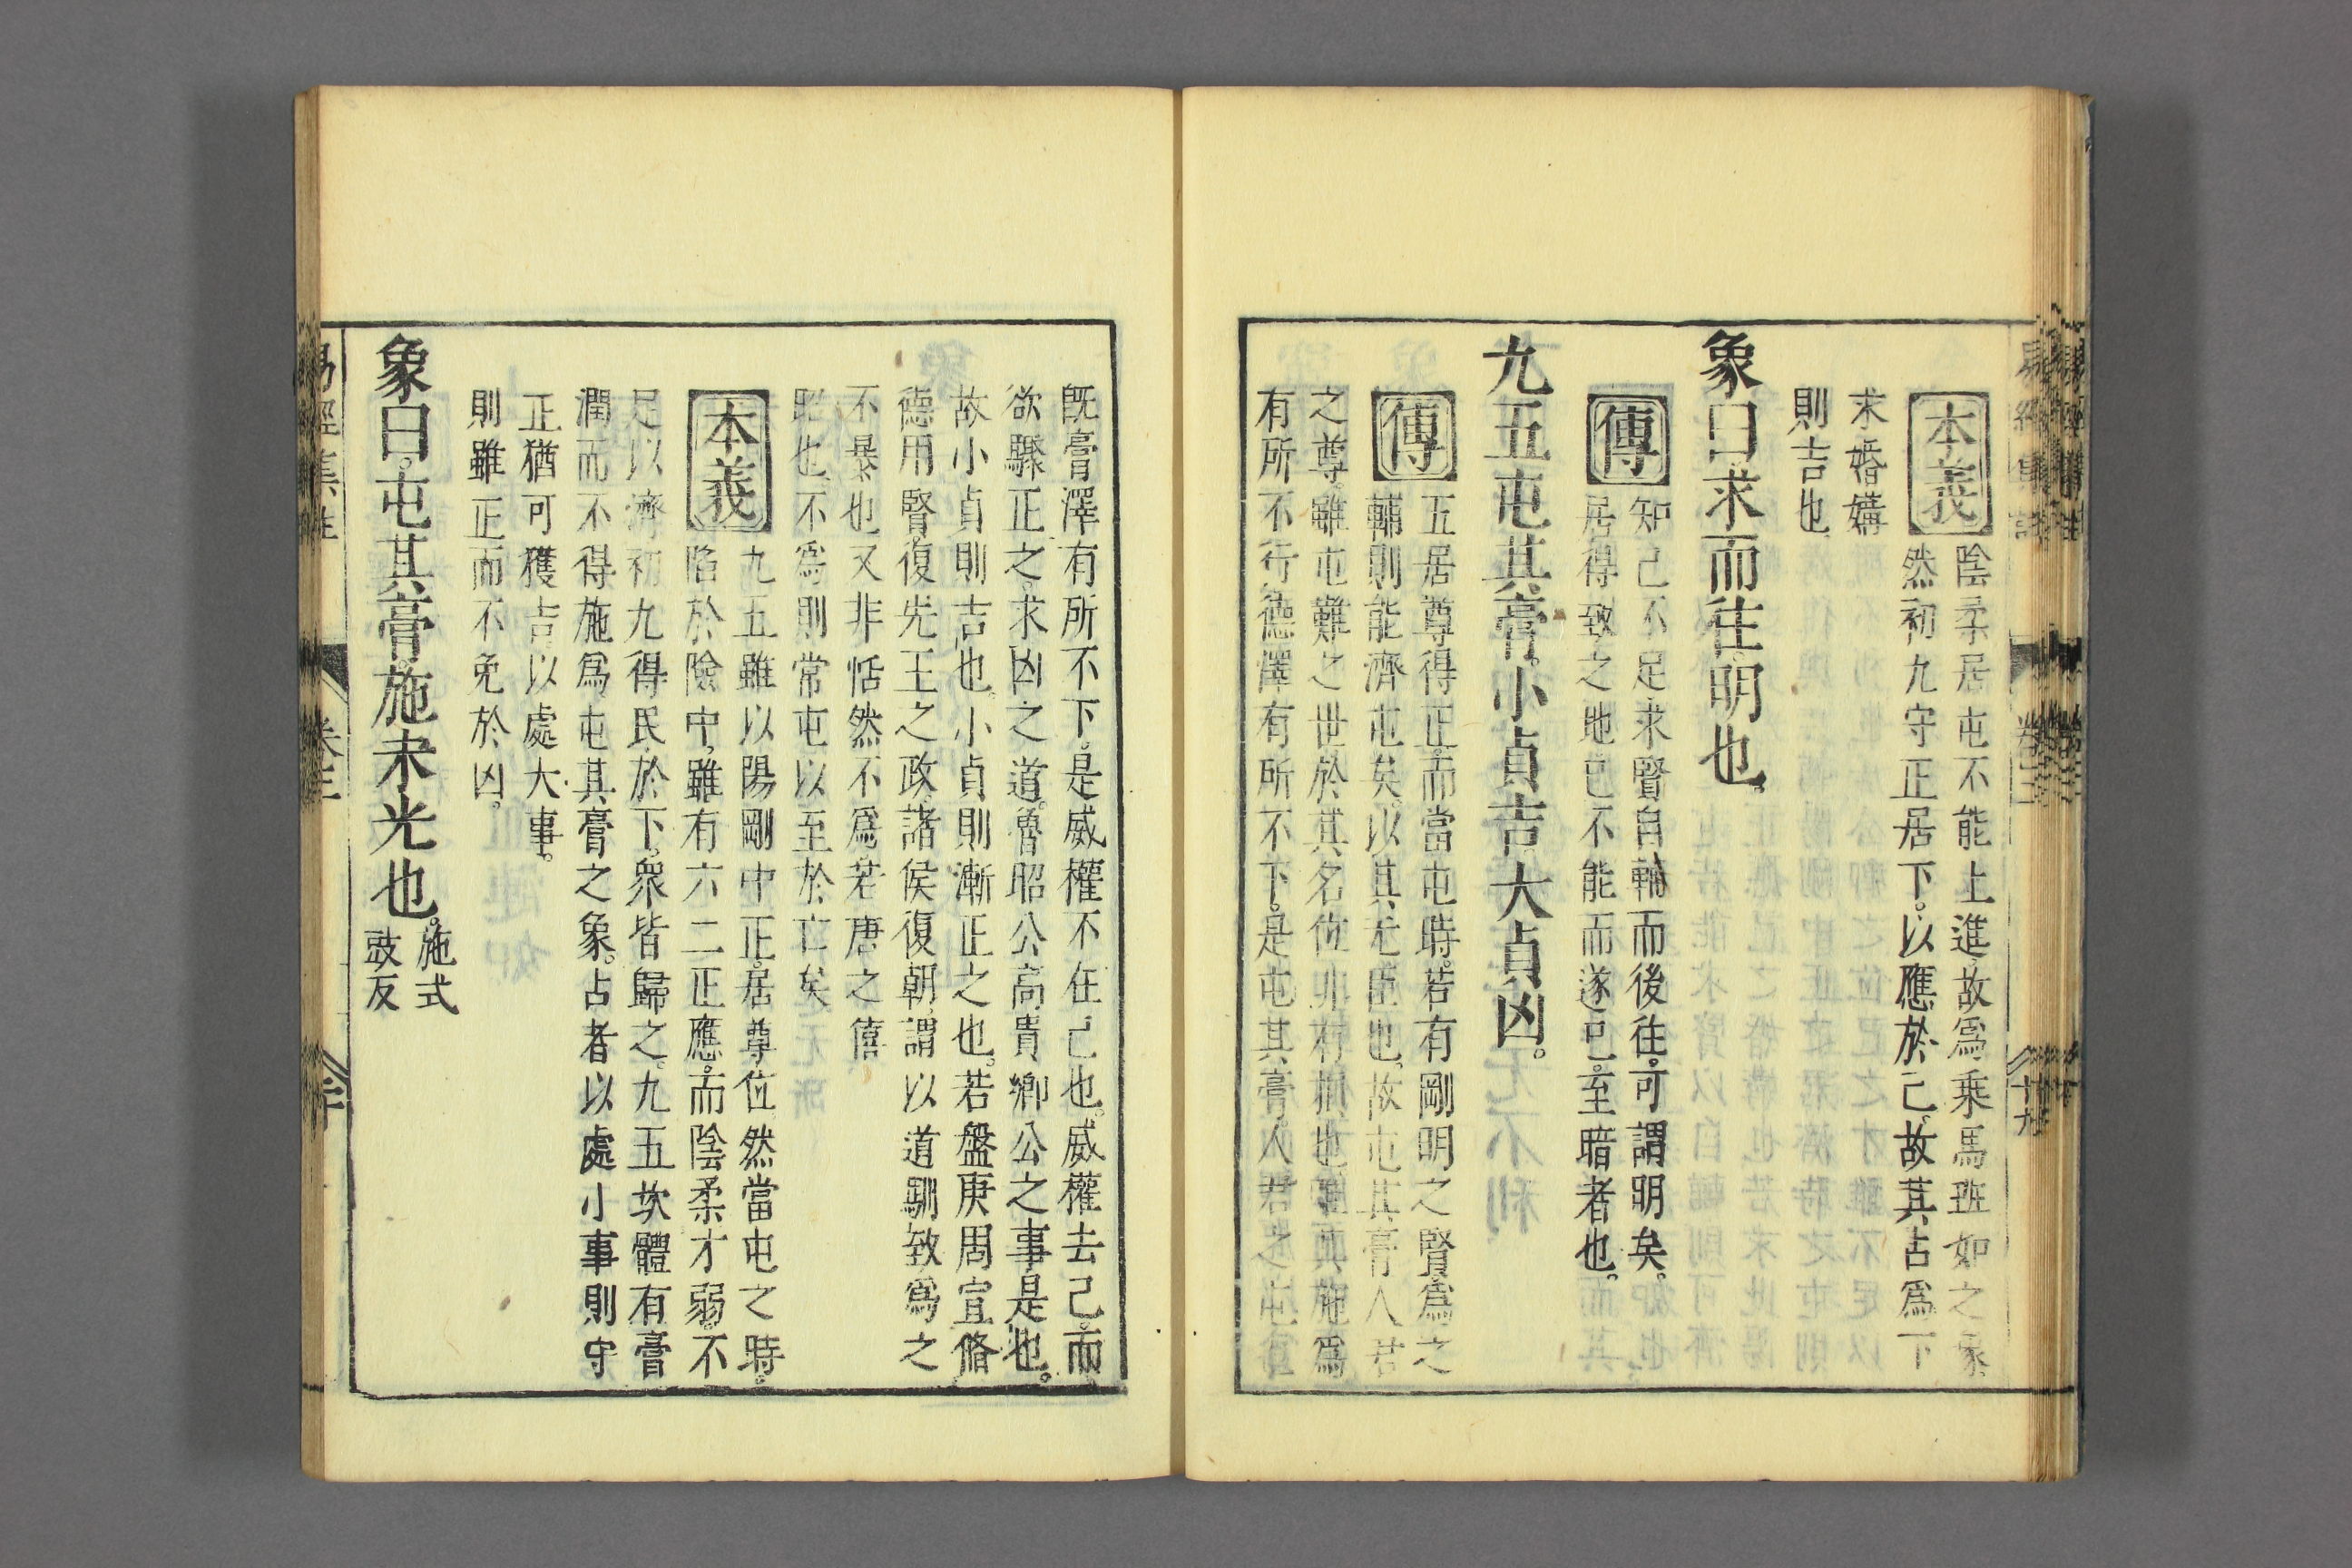 本義
陰柔居屯不能上進故爲乗馬班如之象
然初九守正居下。以應於己。故其占爲下
求婚媾
則吉也
象曰。求而往。明也。
傳
知己不足求賢自輔而後往。可謂明矣。
居得致之地已不能而遂已。至暗者也。
九五屯其膏。小貞吉。大貞凶。
傳
五居尊得正。而當屯時。若有剛明之賢爲之
輔則能濟屯矣。以其无臣也。故屯其膏人君
之尊。雖屯難之世於其名位非有損也唯其施爲
有所不行德澤有所不下。是屯其膏。人君之屯也
既膏澤有所不下。是威權不在己也。威權去己。而
欲驟正之。求凶之道。魯昭公高貴鄉公之事是也。
故小貞則吉也。小貞則漸正之也。若盤庚周宣脩
德用賢。復先王之政。諸侯復朝。謂以道馴致爲之
不暴也又非恬然不爲。若唐之僖
昭也。不爲則常屯以至於亡矣
本義
九五雖以陽剛中正。居尊位。然當屯之時。
陷於險中。雖有六二正應。而陰柔才弱。不
足以濟初九得民於下。衆皆歸之。九五坎體有膏
潤而不得施爲屯其膏之象。占者以處小事則守
正猶可獲吉。以處大事。
則雖正而不免於凶。
象曰。屯其膏。施未光也。
施式
豉反
易經集註
卷三
十九